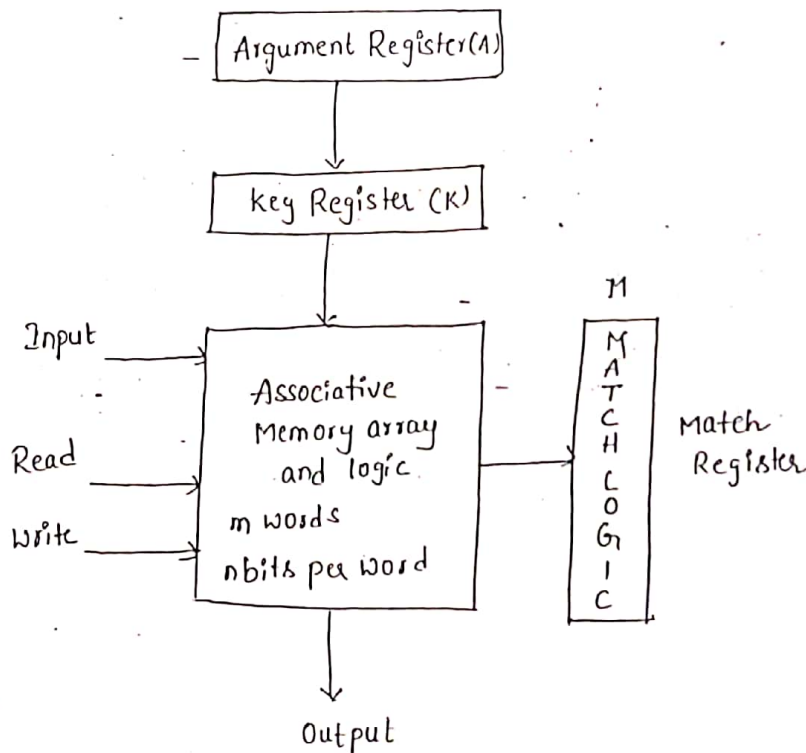 Argument Register(A)
Key Register (K)
M
Input
Read
Write
Associative
Memory array
and logic
m words
nbits per word
MATCH LOGIC
Match
Register
Output